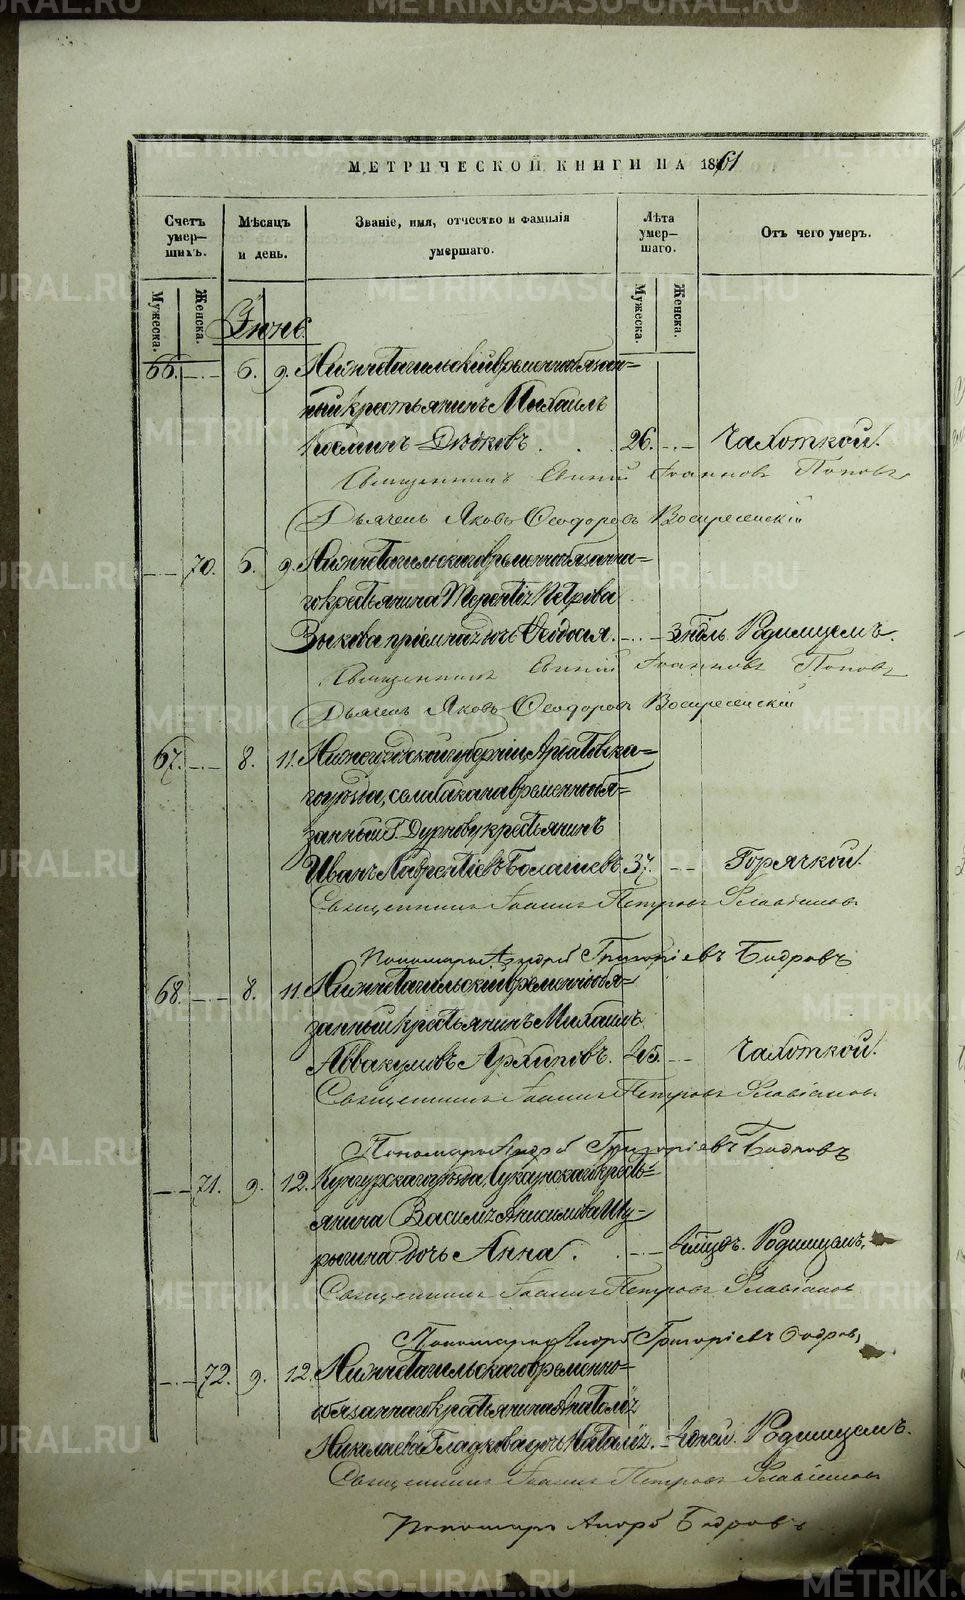 МЕТРИЧЕСКОЙ КНИГИ НА 1861
Счетъ умер-шихъ.
Мѣсяцъ и день.
Званіе, имя, отчество и фамилія умершаго.
Лѣта умер-шаго.
Отъ чего умеръ.
Мужеска. Женска.
Мужеска. Женска.
Іюнь.
66. 6. 9. Нижнетагильскій временнообязан=
ный крестьянинъ Михаилъ
Дюковъ. 26. Чахоткой.
Священникъ Іоанновъ Поповъ
Дьячекъ Яковъ Ѳеодоровъ Воскресенскій
70. 6. 9. Нижнетагильскаго временнообязанна=
го крестьянина Терентія Петрова
Зыкова пріемная дочь Ѳеодосія. Родимцемъ.
Священникъ Іоанновъ Поповъ
Дьячекъ Яковъ Ѳеодоровъ Воскресенскій
67. 8. 11. Нижегородской губерніи, Ардатовска=
го уѣзда, села временнообя=
занный Г. Дурнову крестьянинъ
Иванъ Лаврентіевъ 37. Горячкой.
Священникъ Іоаннъ Петровъ Славниновъ
Пономарь Андрей Григоріевъ Бодровъ
68. 8. 11. Нижнетагильскій временнообя=
занный крестьянинъ Михаилъ
Аввакумовъ Архиповъ. 45. Чахоткой.
Священникъ Іоаннъ Петровъ
Пономарь Андрей Григоріевъ Бодровъ
71. 9. 12. Кунгурскаго уѣзда, Суксунскаго кресть=
янина Василія Анисимова Шу=
рыгина дочь Анна. Родимцемъ.
Священникъ Іоаннъ Петровъ
Пономарь Андрей Григоріевъ Бодровъ
72. 9. 12. Нижнетагильскаго временно=
обязаннаго крестьянина Анатолія
Николаева Гладкова дочь Наталія. Родимцемъ.
Священникъ Іоаннъ Петровъ
Пономарь Андрей Бодровъ
METRIKI.GASO-URAL.RU